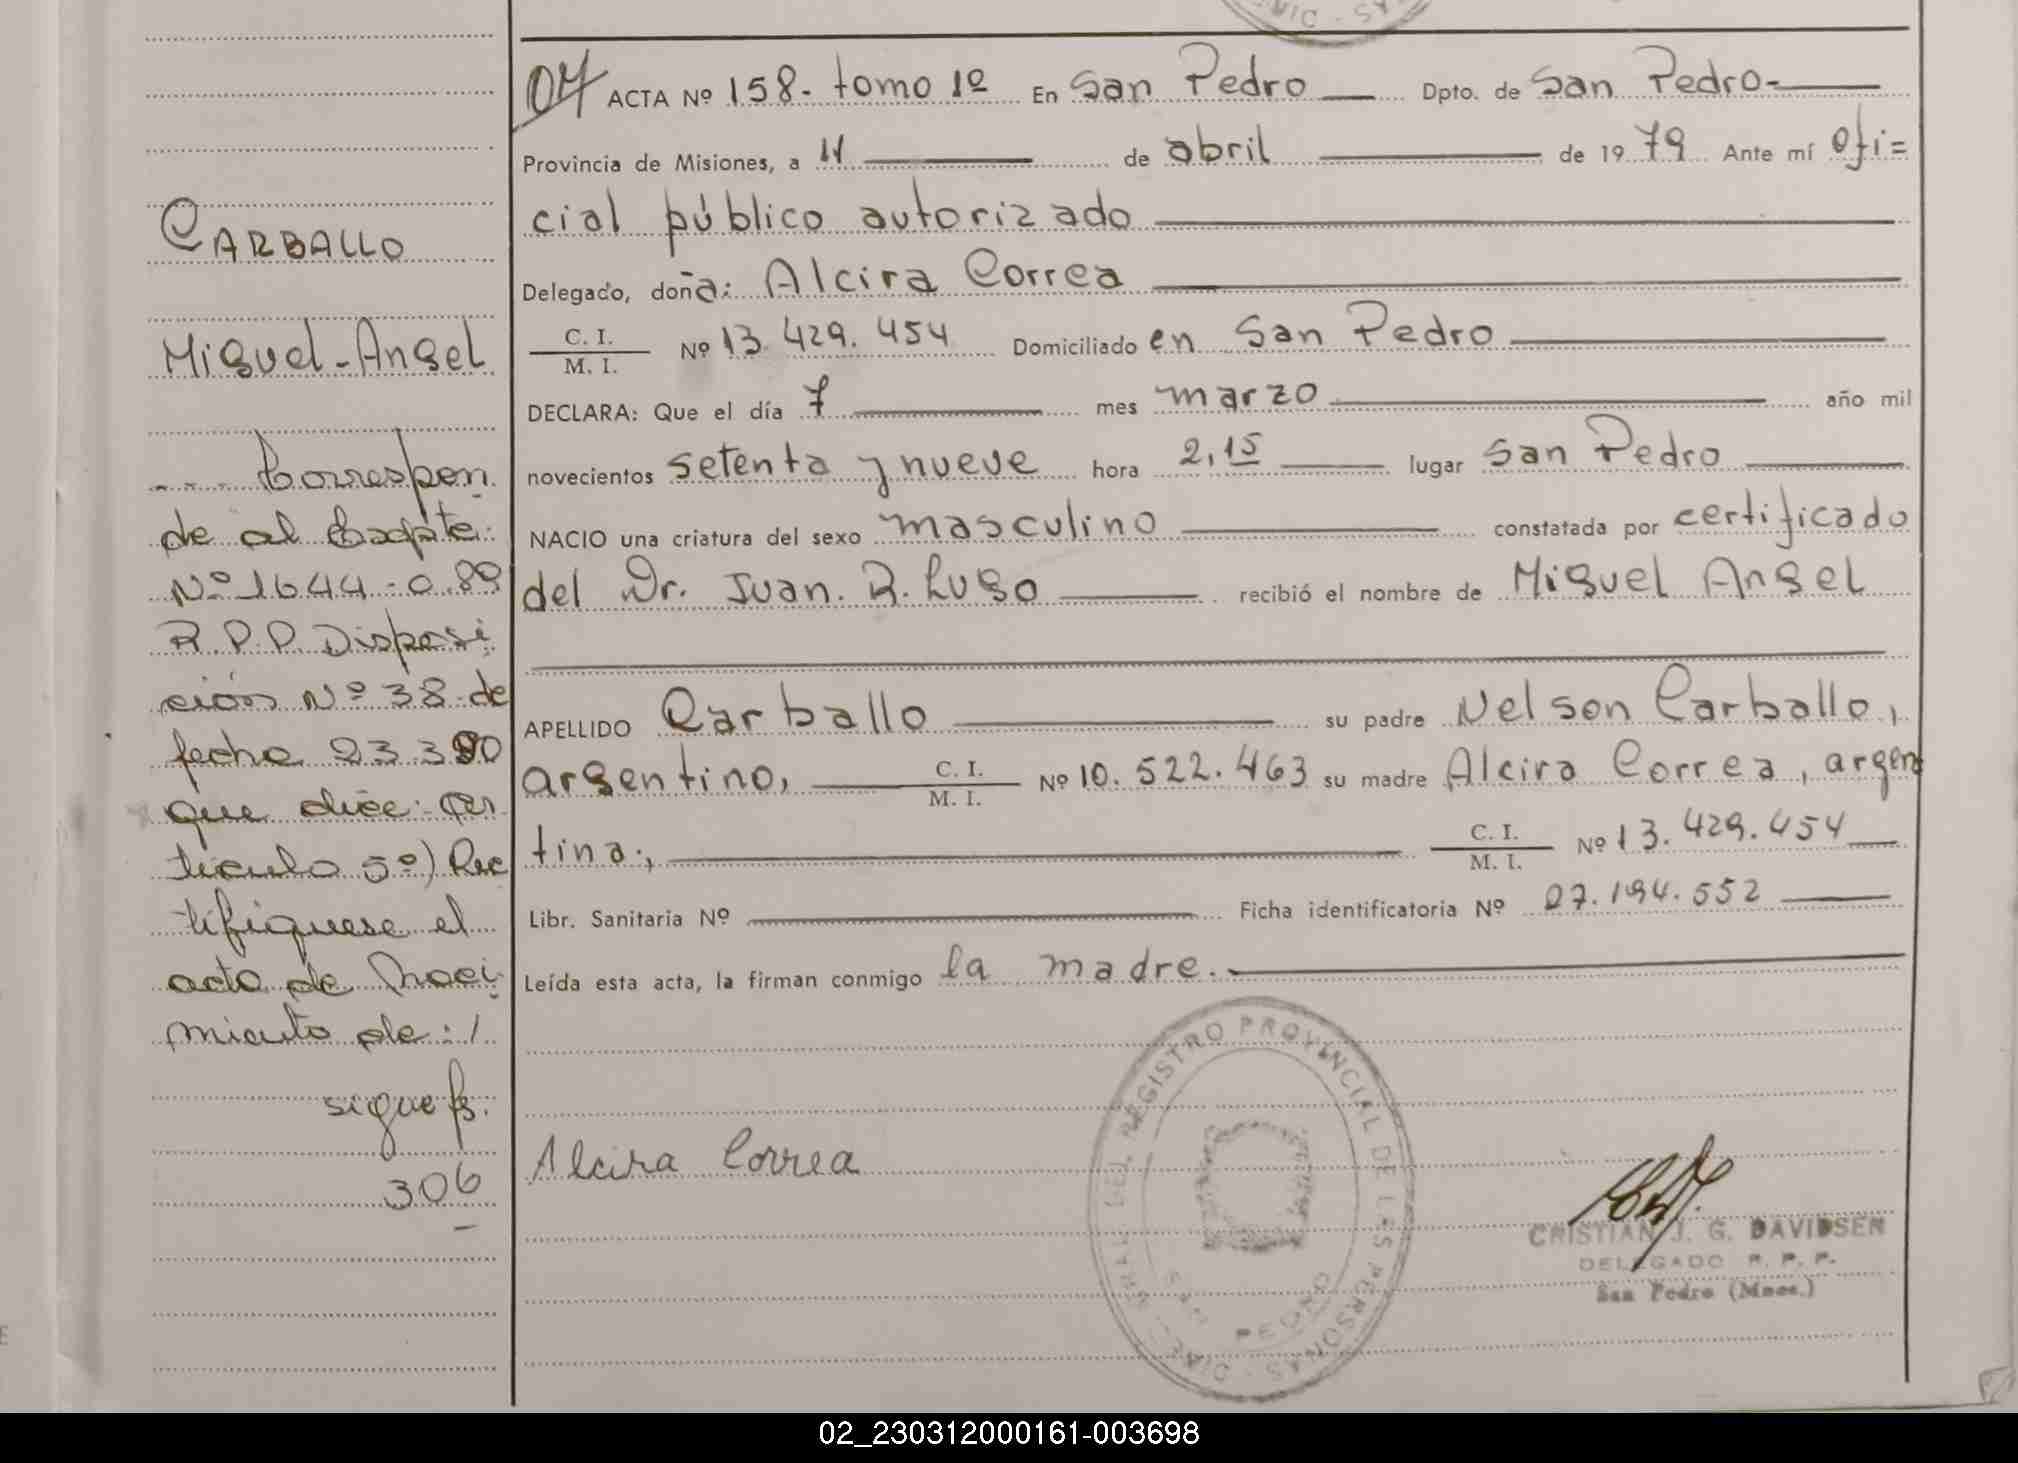 CARBALLO
Miguel-Angel
--- Correspon
de al Expte.
Nº 1644-0.89
R.P.P. Disposi
ción Nº 38 de
fecha 23.3.90
que dice: Ar
tículo 5º) Rec
tifiquese el
acta de Naci
miento de: /
sigue fs.
306
ACTA Nº 158- tomo 1º En San Pedro Dpto. de San Pedro-
Provincia de Misiones, a 11 de abril de 1979 Ante mí Ofi=
cial público autorizado
Delegado, doña: Alcira Correa
C. I.
M. I. Nº 13.429.454 Domiciliado en San Pedro
DECLARA: Que el día 7 mes marzo año mil
novecientos setenta y nueve hora 2,15 lugar San Pedro
NACIO una criatura del sexo masculino constatada por certificado
del Dr. Juan. R. Lugo recibió el nombre de Miguel Angel
APELLIDO Carballo su padre Nelson Carballo,
argentino, C. I. M. I. Nº 10.522.463 su madre Alcira Correa, argen
tina, C. I. M. I. Nº 13.429.454
Libr. Sanitaria Nº Ficha identificatoria Nº 27.194.552
Leída esta acta, la firman conmigo la madre.
REGISTRO PROVINCIAL DE LAS PERSONAS
SAN PEDRO
Alcira Correa
CRISTIAN J. G. DAVIDSEN
DELEGADO R. P. P.
San Pedro (Mnes.)
02_230312000161-003698